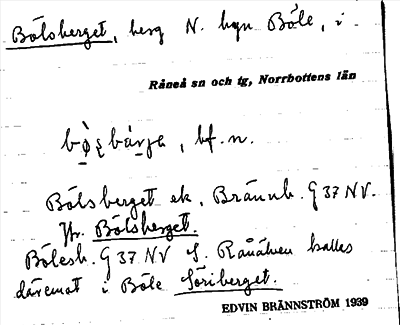 Bölsberget, berg N. byn Böle, i
Råneå sn och tg, Norrbottens län
bf. n.
Bölsberget ek. Brännb. G 37 NV.
Jfr. Bölsberget.
Bölesb. G 37 NV S. Råneälven kallas
däremot i Böle Söriberget.
EDVIN BRÄNNSTRÖM 1939